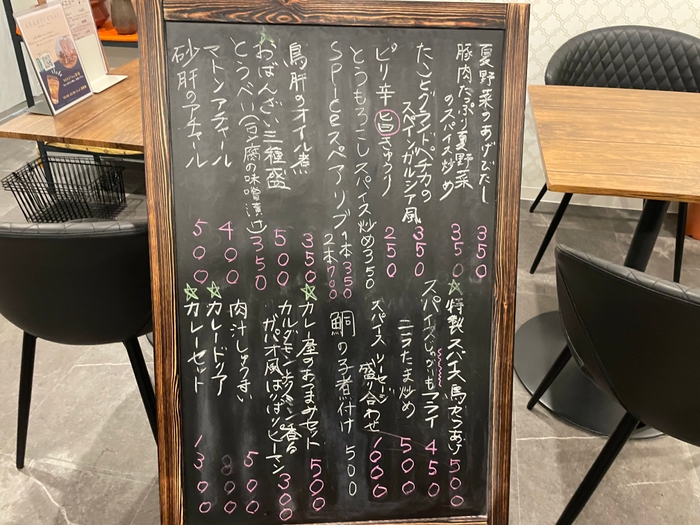 夏野菜のあげびたし 350
豚肉たっぷり夏野菜
のスパイス炒め 350
たことグランドペチカの
スペインガルシア風 350
ピリ辛旨きゅうり 250
とうもろこしスパイス炒め 350
SPiceスペアリブ 1本 350
2本 700
鳥肝のオイル煮 350
おばんざい三種盛 500
とうべい(豆腐の味噌漬け) 350
マトンアチャール 400
砂肝のアチャール 500
☆特製スパイス鳥からあげ 500
スパイスじゃがいもフライ 450
ニラたま炒め 500
スパイスソーセージ
盛り合わせ 1000
鯛の子煮付け 500
☆カレー屋のおつまみセット 500
カルダモンとクミン香る
ガパオ風ぱりぱりピーマン 300
肉汁しゅうまい 500
☆カレードリア 800
☆カレーセット 1300